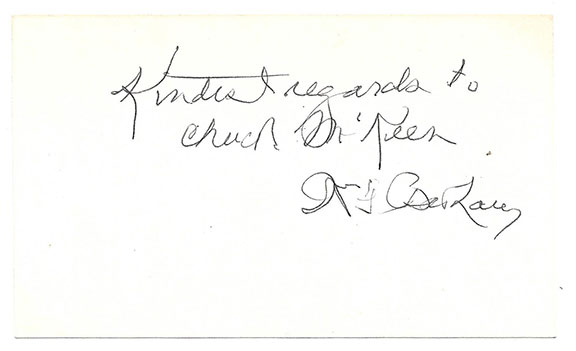 Kindest regards to
Chuck McKeen